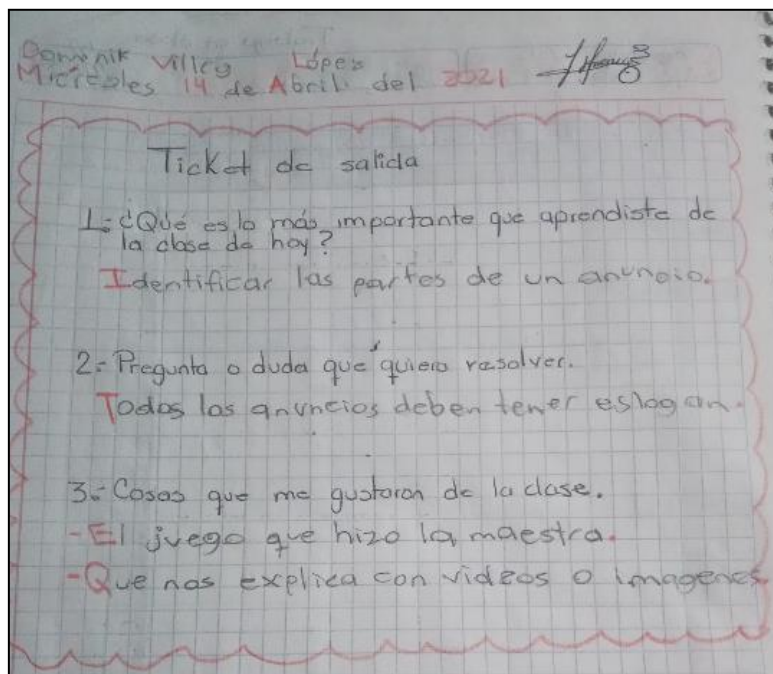 Dominik Villeg López
Miércoles 14 de Abril del 2021
Ticket de salida
1.-¿Qué es lo más importante que aprendiste de
la clase de hoy?
Identificar las partes de un anuncio.
2.- Pregunta o duda que quiero resolver.
Todos los anuncios deben tener eslogan.
3.- Cosas que me gustaron de la clase.
-El juego que hizo la maestra.
-Que nos explica con videos o imagenes